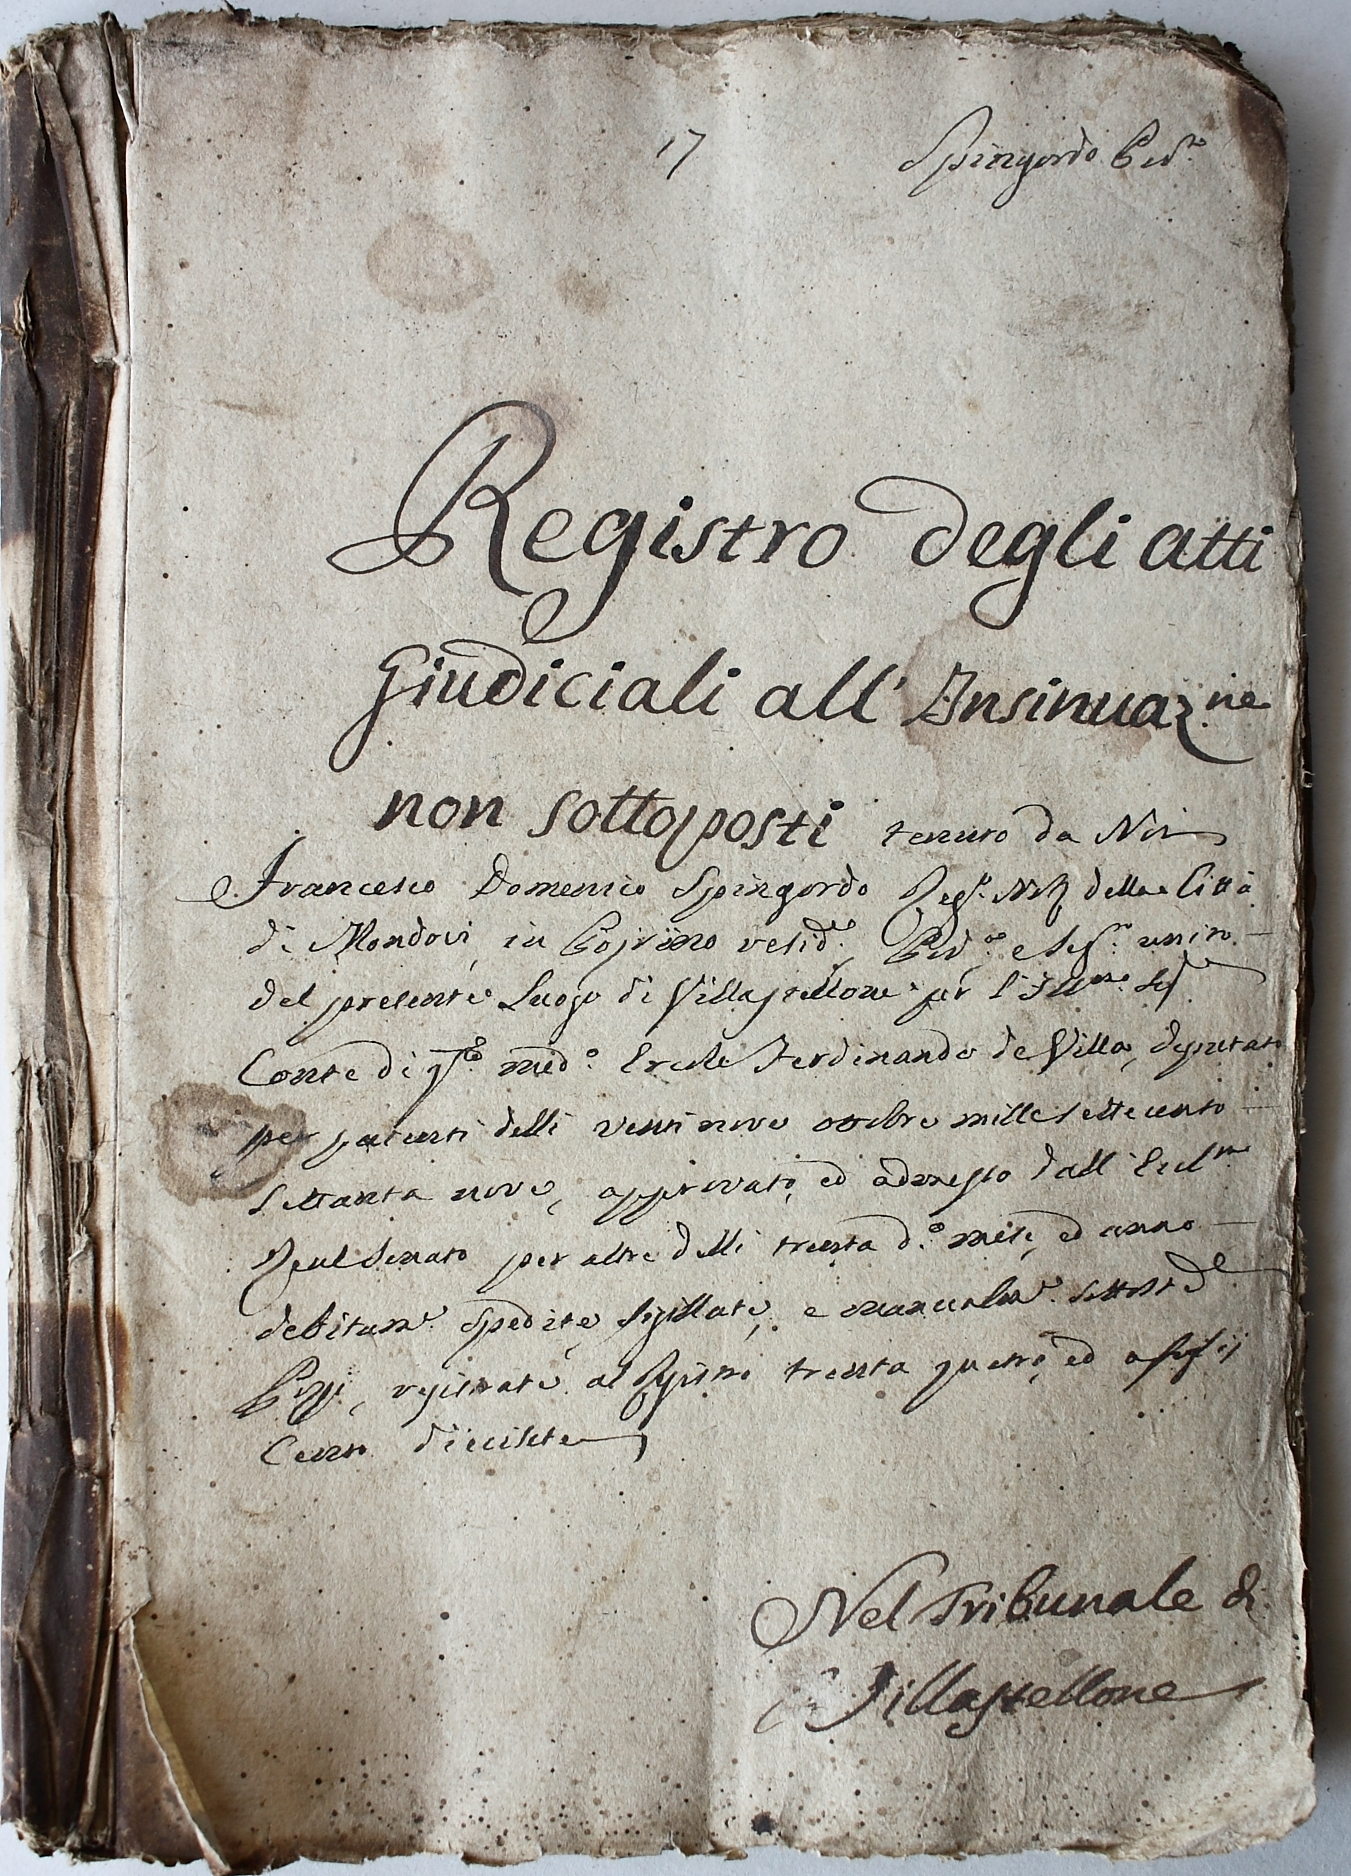 17 Spingardo
Registro degli atti
Giudiciali all' Insinuaz.ne
non sottoposti tenuto da Noi
Francesco Domenico Spingardo Reg.o della Città
di Mondovi, in resid.e e unico
del presente Luogo di Villastellone per l'Ill.mo Sig
Conte di med.o Ercole Ferdinando de Villa, deputato
per patenti delli venti nove ottobre mille settecento
settanta nove, approvato, ed ammesso dall' Eccl.mo
Real Senato per altre delli trenta d.o mese, ed anno
debitam.e spedite, sigillate, e manualm.e sottost.e
registrate al Registro trenta quatro, ed a
Cento diecisete
Nel Tribunale di
Villastellone